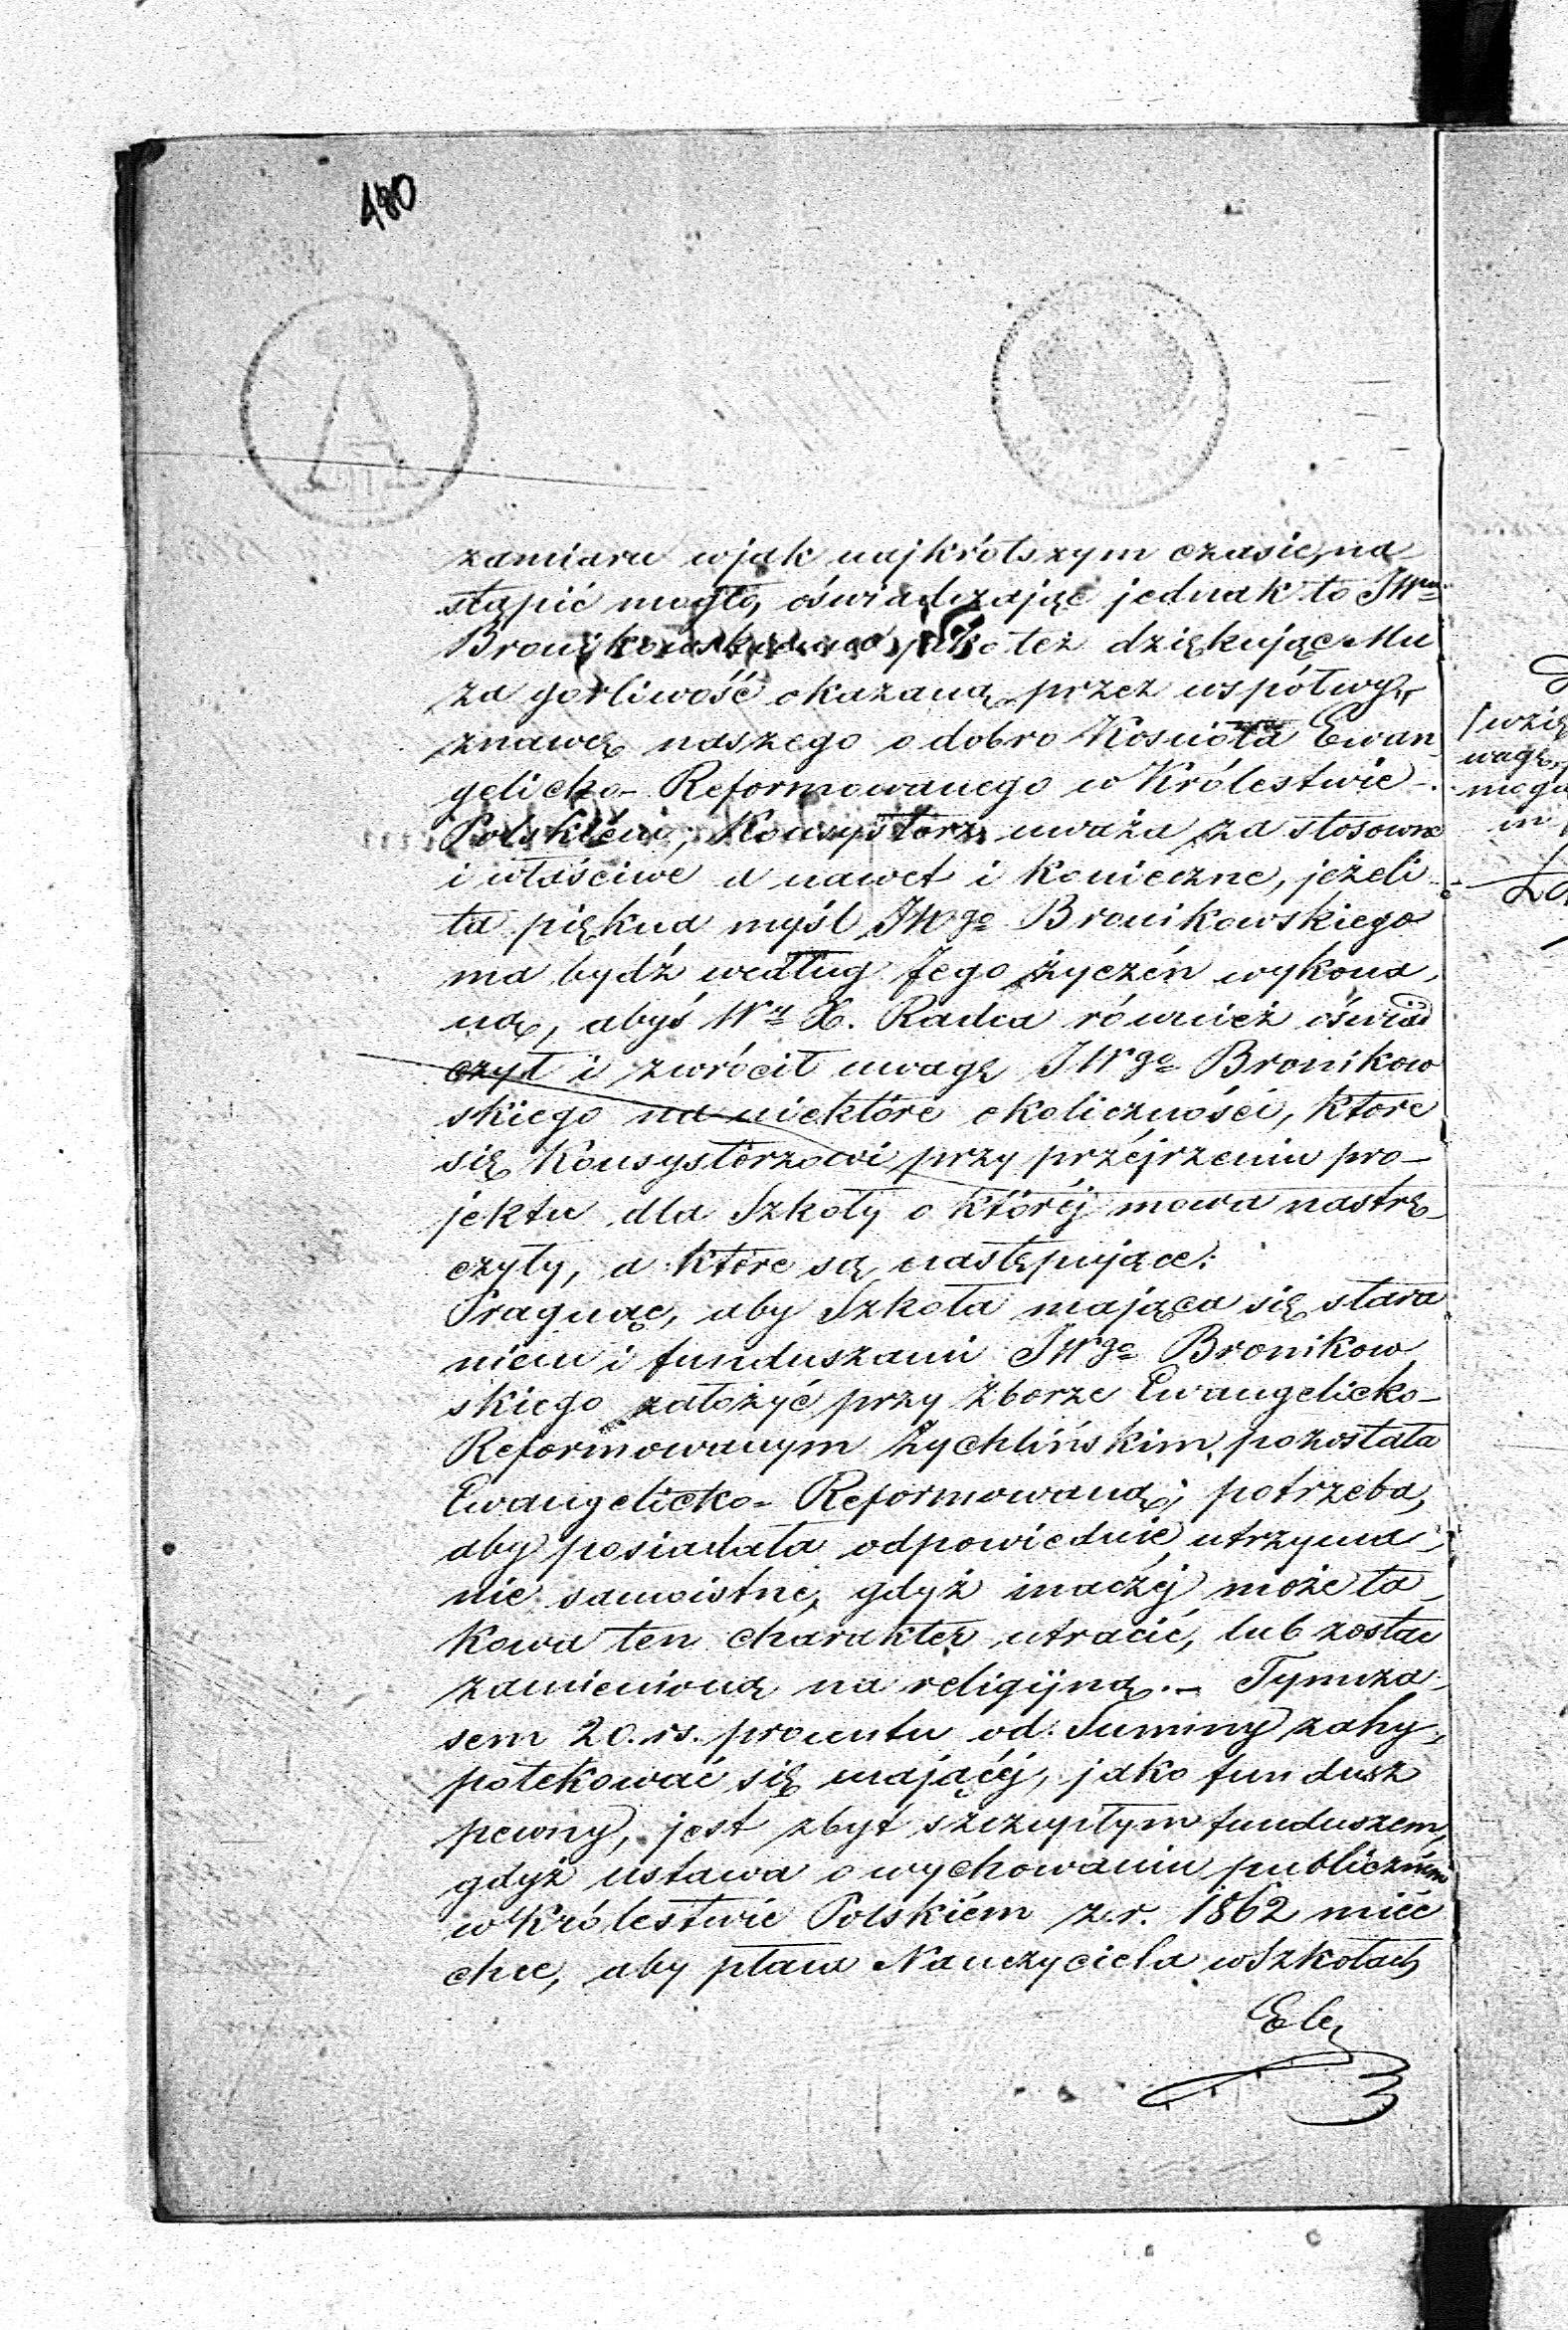 480
zamiaru w jak najkrótszym czasie, na
stąpić mogło, oświadczając jednak to JWmu
Bronikowskiemu jako też dziękując Mu
za gorliwość okazaną przez współwy-
znawcę naszego o dobro Kościoła Ewan
gelicko-Reformowanego w Królestwie
Polskiém, Konsystorz uważa za stosowne
i właściwe a nawet i konieczne, jeżeli
ta piękna myśl JWgo Bronikowskiego
ma bydź według Jego życzeń wykona-
ną, abyś Wy X. Radca również oświad
czył i zwrócił uwagę JWgo Bronikow
skiego na niektóre okoliczności, które
się Konsystorzowi przy przéjrzeniu pro-
jektu dla Szkoły o któréj mowa nastrę-
czyły, a które są następujące:
Pragnąc, aby Szkoła mająca się stara
niem i funduszami JWgo Bronikow
skiego założyć przy Zborze Ewangelicko-
Reformowanym Żychlińskim, pozostała
Ewangelicko-Reformowaną, potrzeba,
aby posiadała odpowiednie utrzyma-
nie samoistne, gdyż inaczéj może ta-
kowa ten charakter utracić, lub zostać
zamienioną na religijną. - Tymcza-
sem 20. rs. procentu od Summy zahy-
potekować się mającéj, jako fundusz
pewny, jest zbyt szczupłym funduszem,
gdyż ustawa o wychowaniu publiczném
w Królestwie Polskiém z r. 1862 mieć
chce, aby płaca Nauczyciela w Szkołach
Ele
wzię
wagę,
mogą